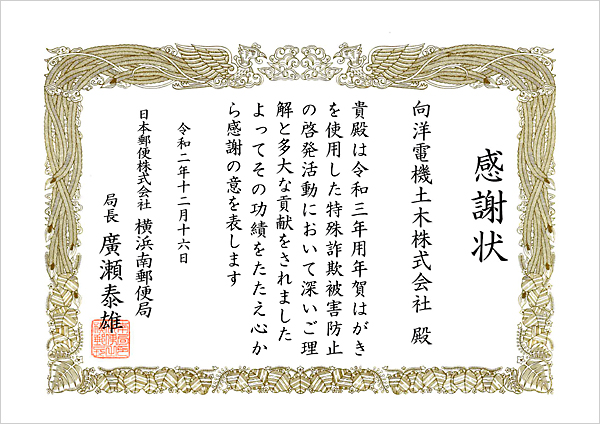 感謝状
向洋電機土木株式会社 殿
貴殿は令和三年用年賀はがき
を使用した特殊詐欺被害防止
の啓発活動において深いご理
解と多大な貢献をされました
よってその功績をたたえ心か
ら感謝の意を表します
令和二年十二月十六日
日本郵便株式会社 横浜南郵便局
局長 廣瀬泰雄